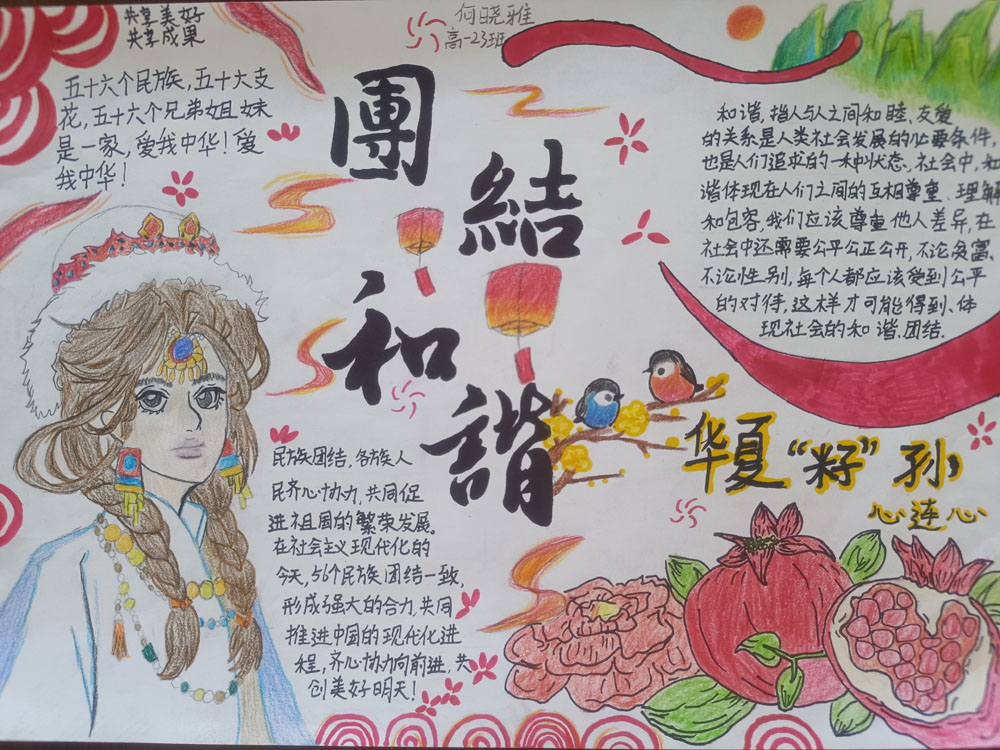 共享美好
共享成果
何晓雅
高一23班
五十六个民族,五十六支
花,五十六个兄弟姐妹
是一家,爱我中华!爱
我中华!
團
結
和
諧
和谐,指人与人之间和睦、友爱
的关系是人类社会发展的必要条件,
也是人们追求的一种状态。社会中,和
谐体现在人们之间的互相尊重、理解
和包容,我们应该尊重他人差异,在
社会中还需要公平公正公开,不论贫富、
不论性别,每个人都应该受到公平
的对待,这样才可能得到、体
现社会的和谐、团结.
华夏“籽”孙
心连心
民族团结,各族人
民齐心协力,共同促
进祖国的繁荣发展。
在社会主义现代化的
今天,56个民族团结一致,
形成强大的合力,共同
推进中国的现代化进
程,齐心协力向前进,共
创美好明天!